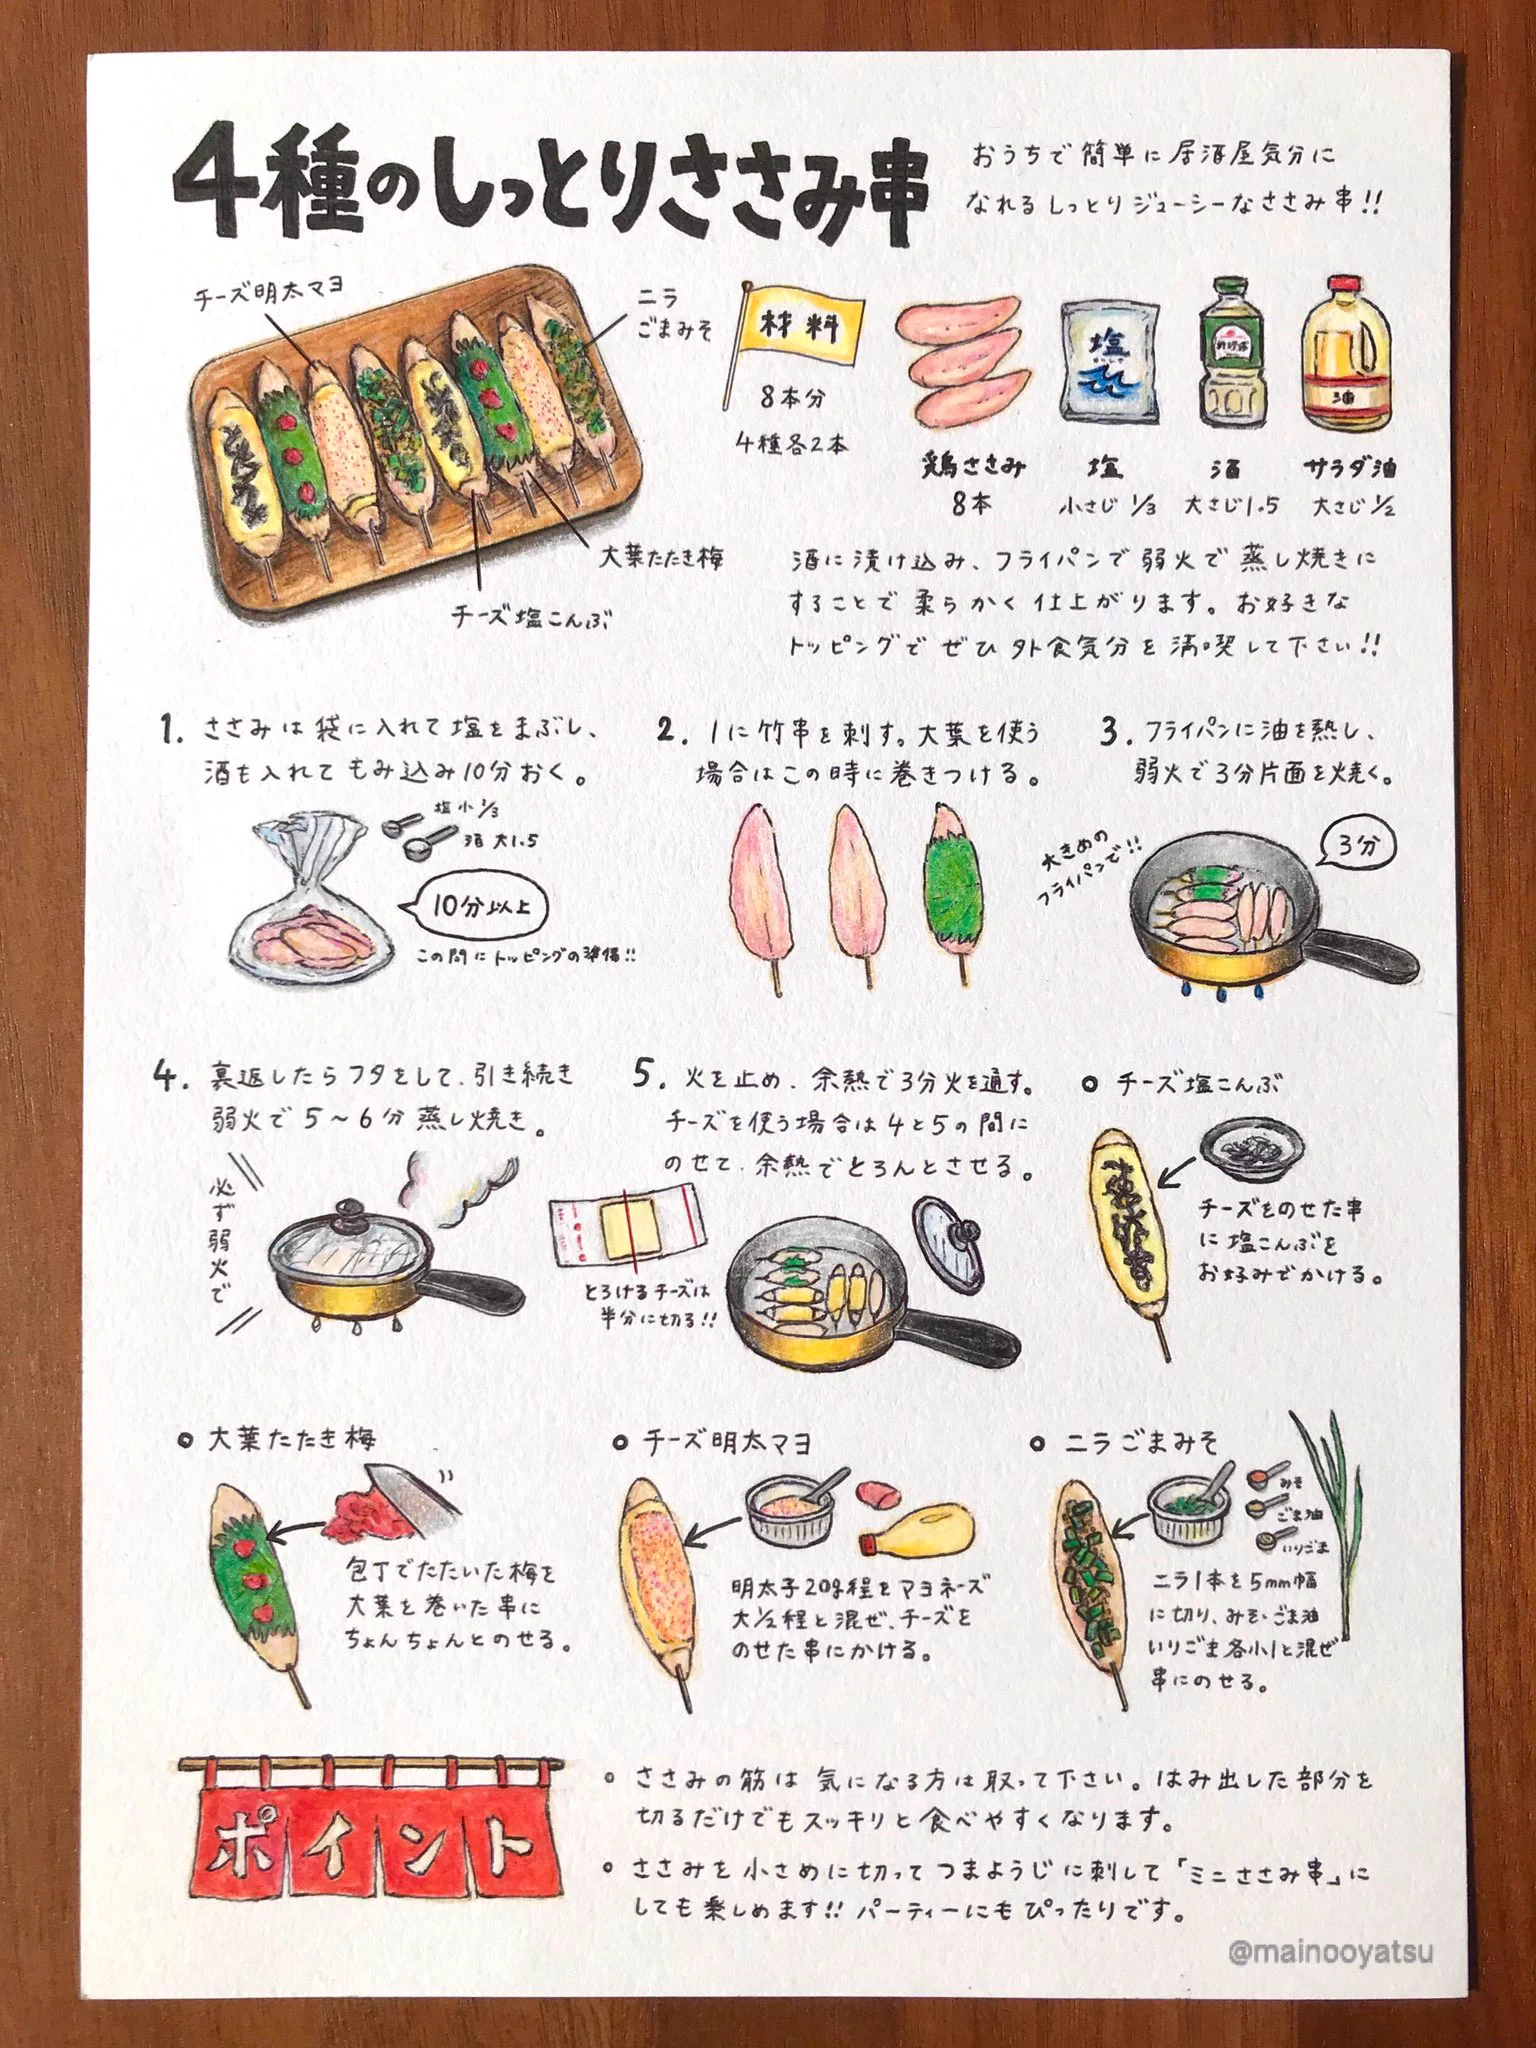 4種のしっとりささみ串
おうちで簡単に居酒屋気分に
なれるしっとりジューシーなささみ串!!
チーズ明太マヨ
ニラ
ごまみそ
大葉たたき梅
チーズ塩こんぶ
材料
8本分
4種各2本
塩
油
鶏ささみ
8本
塩
小さじ 1/3
酒
大さじ1.5
サラダ油
大さじ 1/2
酒に漬け込み、フライパンで弱火で蒸し焼きに
することで柔らかく仕上がります。お好きな
トッピングでぜひ外食気分を満喫して下さい!!
1. ささみは袋に入れて塩をまぶし、
酒も入れてもみ込み10分おく。
塩 小 1/3
酒 大1.5
10分以上
この間にトッピングの準備!!
2. 1に竹串を刺す。大葉を使う
場合はこの時に巻きつける。
3. フライパンに油を熱し、
弱火で3分片面を焼く。
大きめの
フライパンで!!
3分
4. 裏返したらフタをして、引き続き
弱火で5〜6分蒸し焼き。
必ず弱火で
5. 火を止め、余熱で3分火を通す。
チーズを使う場合は4と5の間に
のせて、余熱でとろんとさせる。
とろけるチーズは
半分に切る!!
○ チーズ塩こんぶ
チーズをのせた串
に塩こんぶを
お好みでかける。
○ 大葉たたき梅
包丁でたたいた梅を
大葉を巻いた串に
ちょんちょんとのせる。
○ チーズ明太マヨ
明太子20g程をマヨネーズ
大1/2程と混ぜ、チーズを
のせた串にかける。
○ ニラごまみそ
みそ
ごま油
いりごま
ニラ1本を5mm幅
に切り、みそ・ごま油
いりごま各小1と混ぜ
串にのせる。
ポイント
○ ささみの筋は気になる方は取って下さい。はみ出した部分を
切るだけでもスッキリと食べやすくなります。
○ ささみを小さめに切ってつまようじに刺して「ミニささみ串」に
しても楽しめます!!パーティーにもぴったりです。
@mainooyatsu